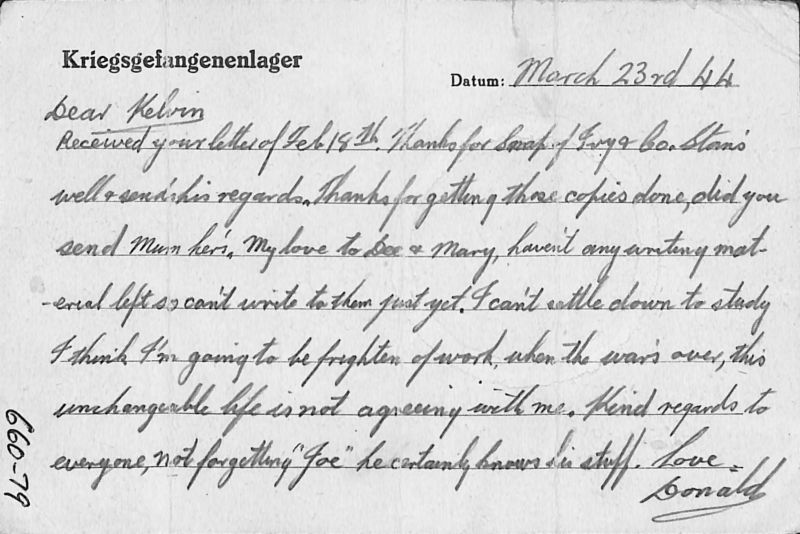 Kriegsgefangenenlager
Datum: March 23rd 44
Dear Kelvin
Received your letter of Feb 18th. Thanks for Snap of Ivy & Co. Stan's
well & send's his regards. Thanks for getting those copies done, did you
send Mum her's. My love to Dee & Mary, haven't any writing mat-
-erial left so can't write to them just yet. I can't settle down to study
I think I'm going to be frighten of work, when the war's over, this
unchangeable life is not agreeing with me. Kind regards to
everyone, not forgetting "Joe" he certainly knows his stuff. Love -
Donald
660-79